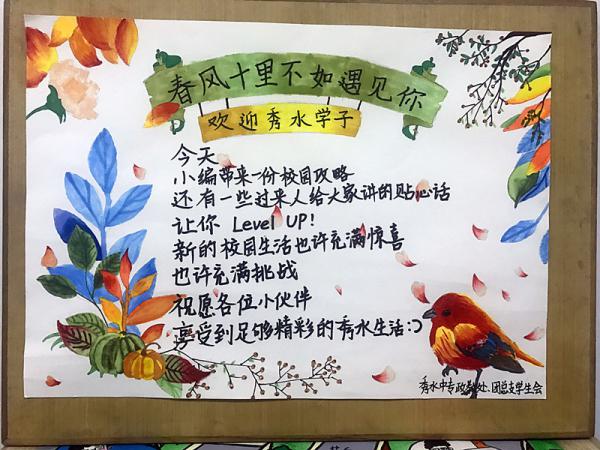 春风十里不如遇见你
欢迎秀水学子
今天
小编带来一份校园攻略
还有一些过来人给大家讲的贴心话
让你 Level UP!
新的校园生活也许充满惊喜
也许充满挑战
祝愿各位小伙伴
享受到足够精彩的秀水生活:)
秀水中专政教处、团总支学生会